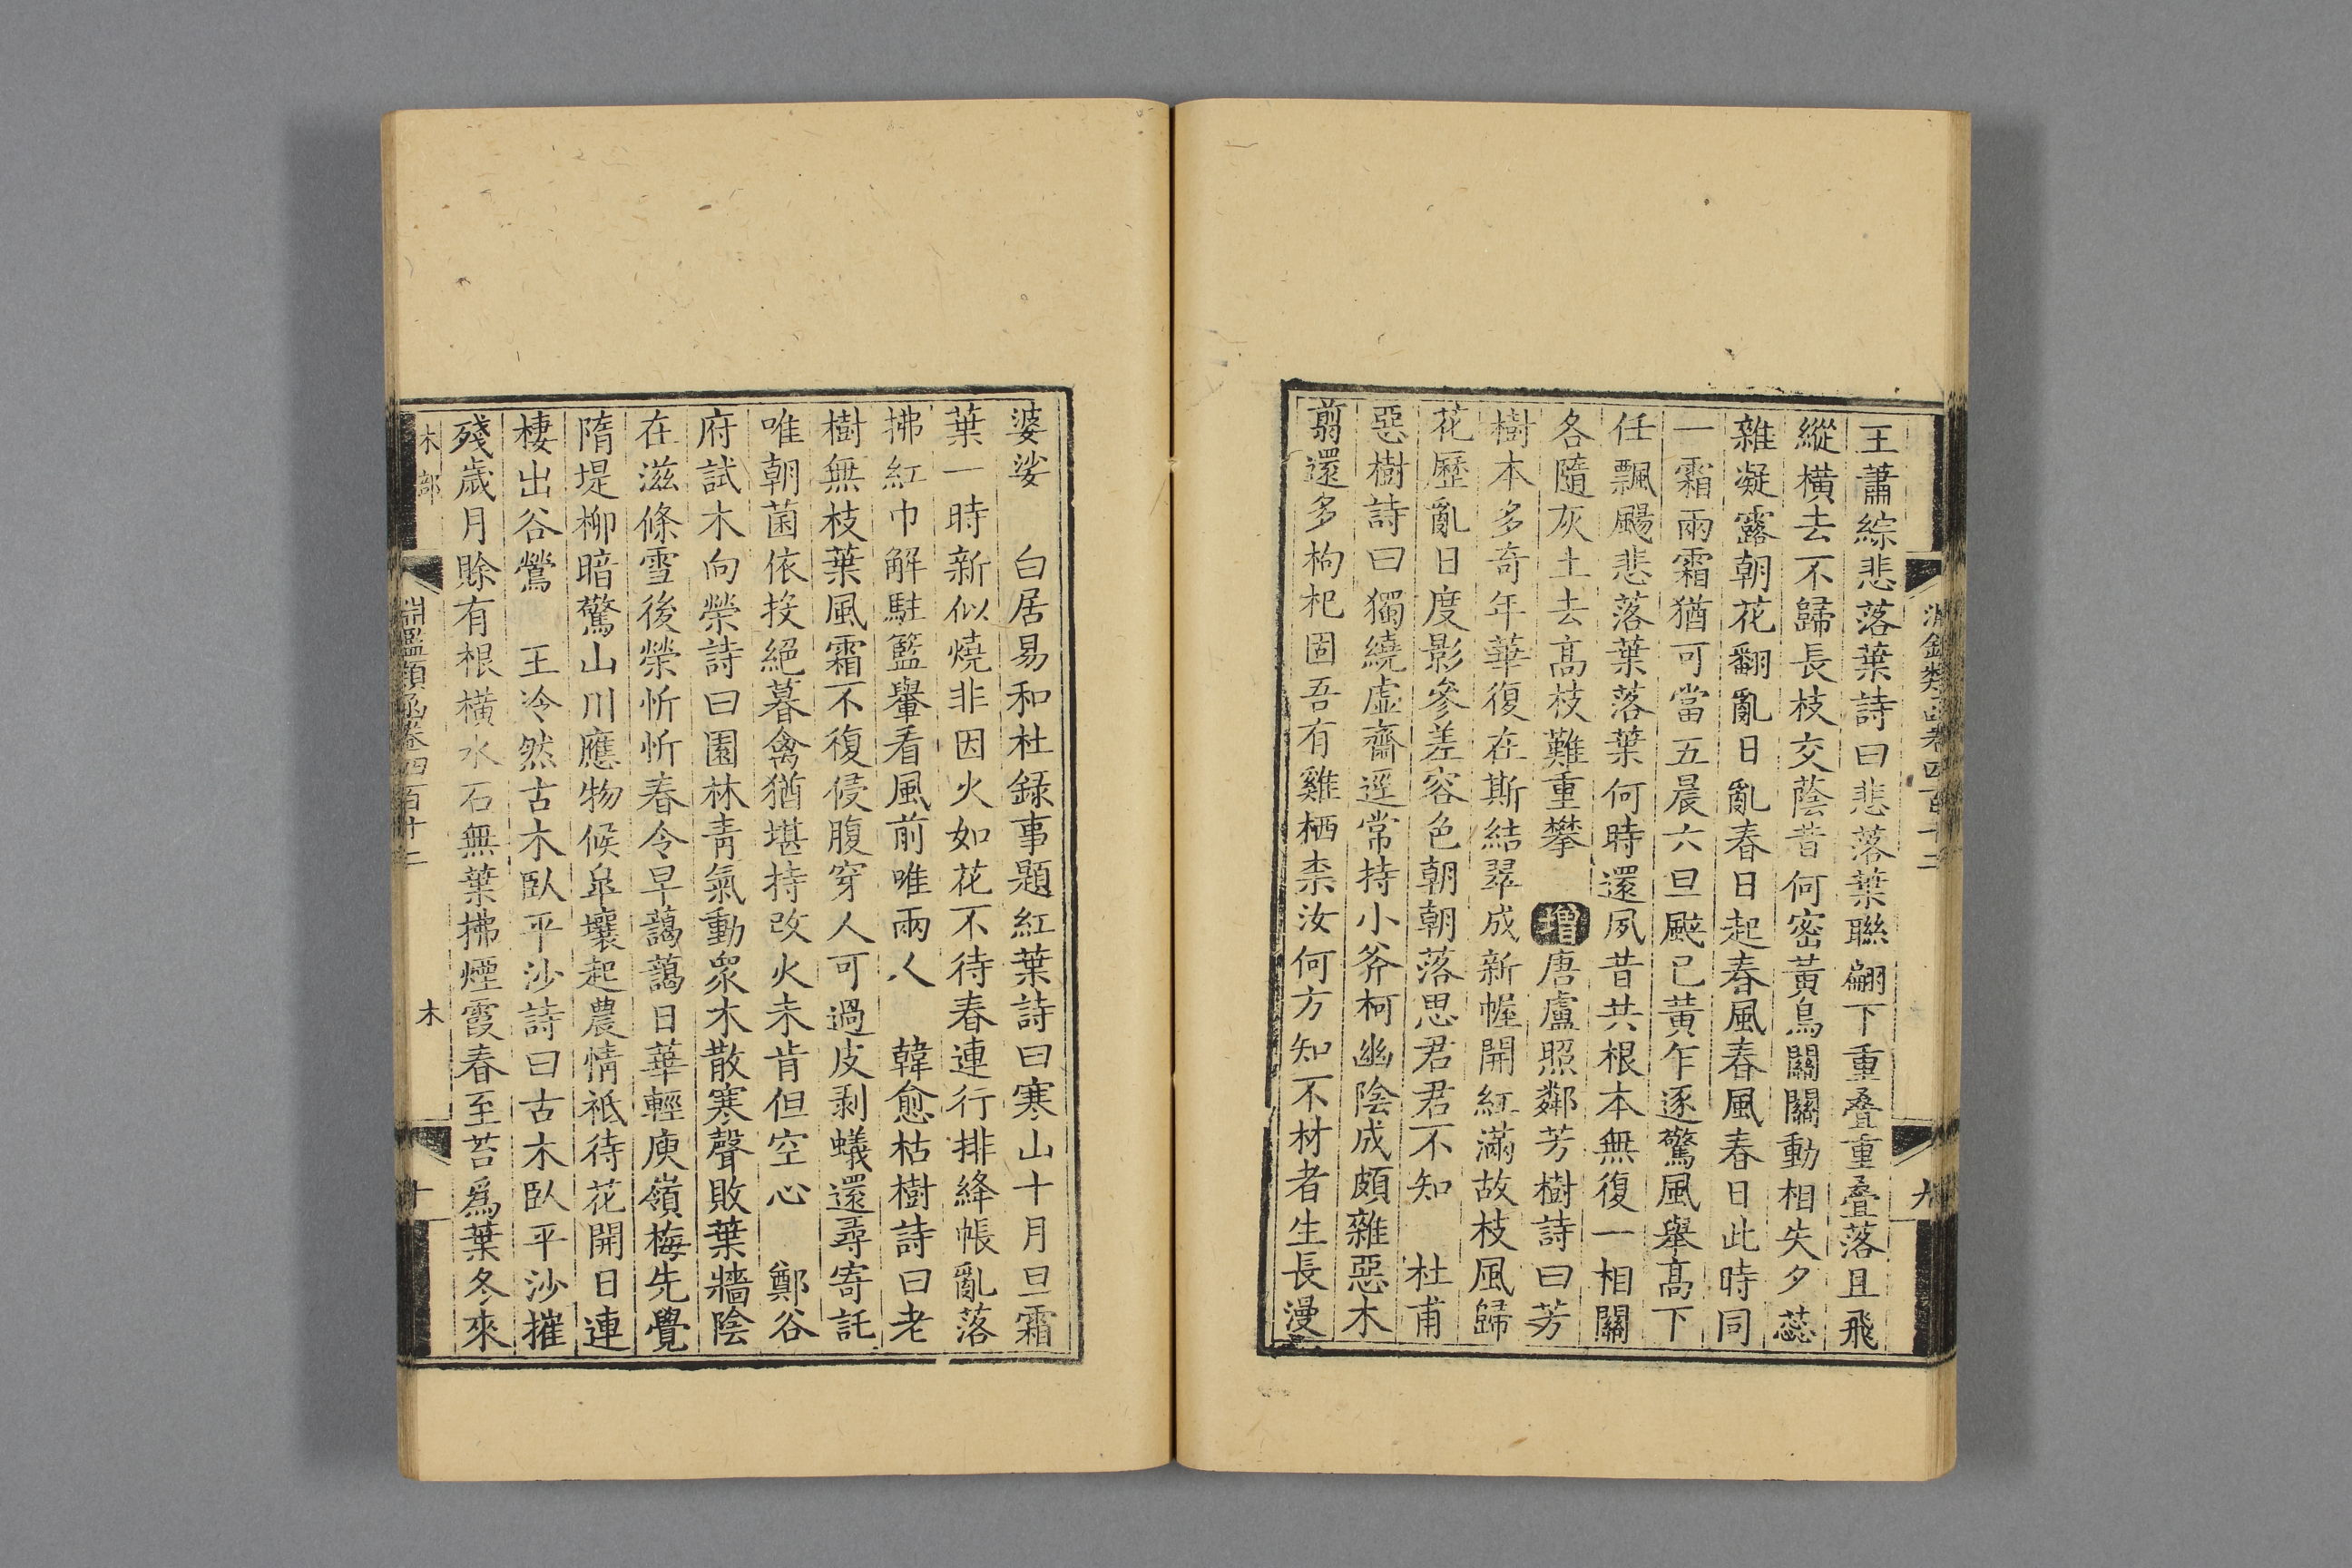 王蕭綜悲落葉詩曰悲落葉聯翩下重疊重疊落且飛
縱橫去不歸長枝交蔭昔何密黃鳥關關動相失夕蕊
雜凝露朝花翻亂日亂春日起春風春風春日此時同
一霜兩霜猶可當五晨六旦颯已黃乍逐驚風舉高下
任飄颺悲落葉落葉何時還夙昔共根本無復一相關
各隨灰土去高枝難重攀 增唐盧照鄰芳樹詩曰芳
樹本多奇年華復在斯結翠成新幄開紅滿故枝風歸
花歷亂日度影參差容色朝朝落思君君不知 杜甫
惡樹詩曰獨繞虛齋逕常持小斧柯幽陰成頗雜惡木
翦還多枸杞固吾有雞栖柰汝何方知不材者生長漫
婆娑 白居易和杜録事題紅葉詩曰寒山十月旦霜
葉一時新似燒非因火如花不待春連行排絳帳亂落
拂紅巾解駐籃轝看風前唯兩人 韓愈枯樹詩曰老
樹無枝葉風霜不復侵腹穿人可過皮剥蟻還尋寄託
唯朝菌依投絕暮禽猶堪持改火未肯但空心 鄭谷
府試木向榮詩曰園林青氣動衆木散寒聲敗葉牆陰
在滋條雪後榮忻忻春令早藹藹日華輕庾嶺梅先覺
隋堤柳暗驚山川應物候臯壤起農情祗待花開日連
棲出谷鶯 王泠然古木臥平沙詩曰古木臥平沙摧
殘歲月賒有根橫水石無葉拂煙霞春至苔爲葉冬來
木部
淵鑑類函卷四百十二
木
十